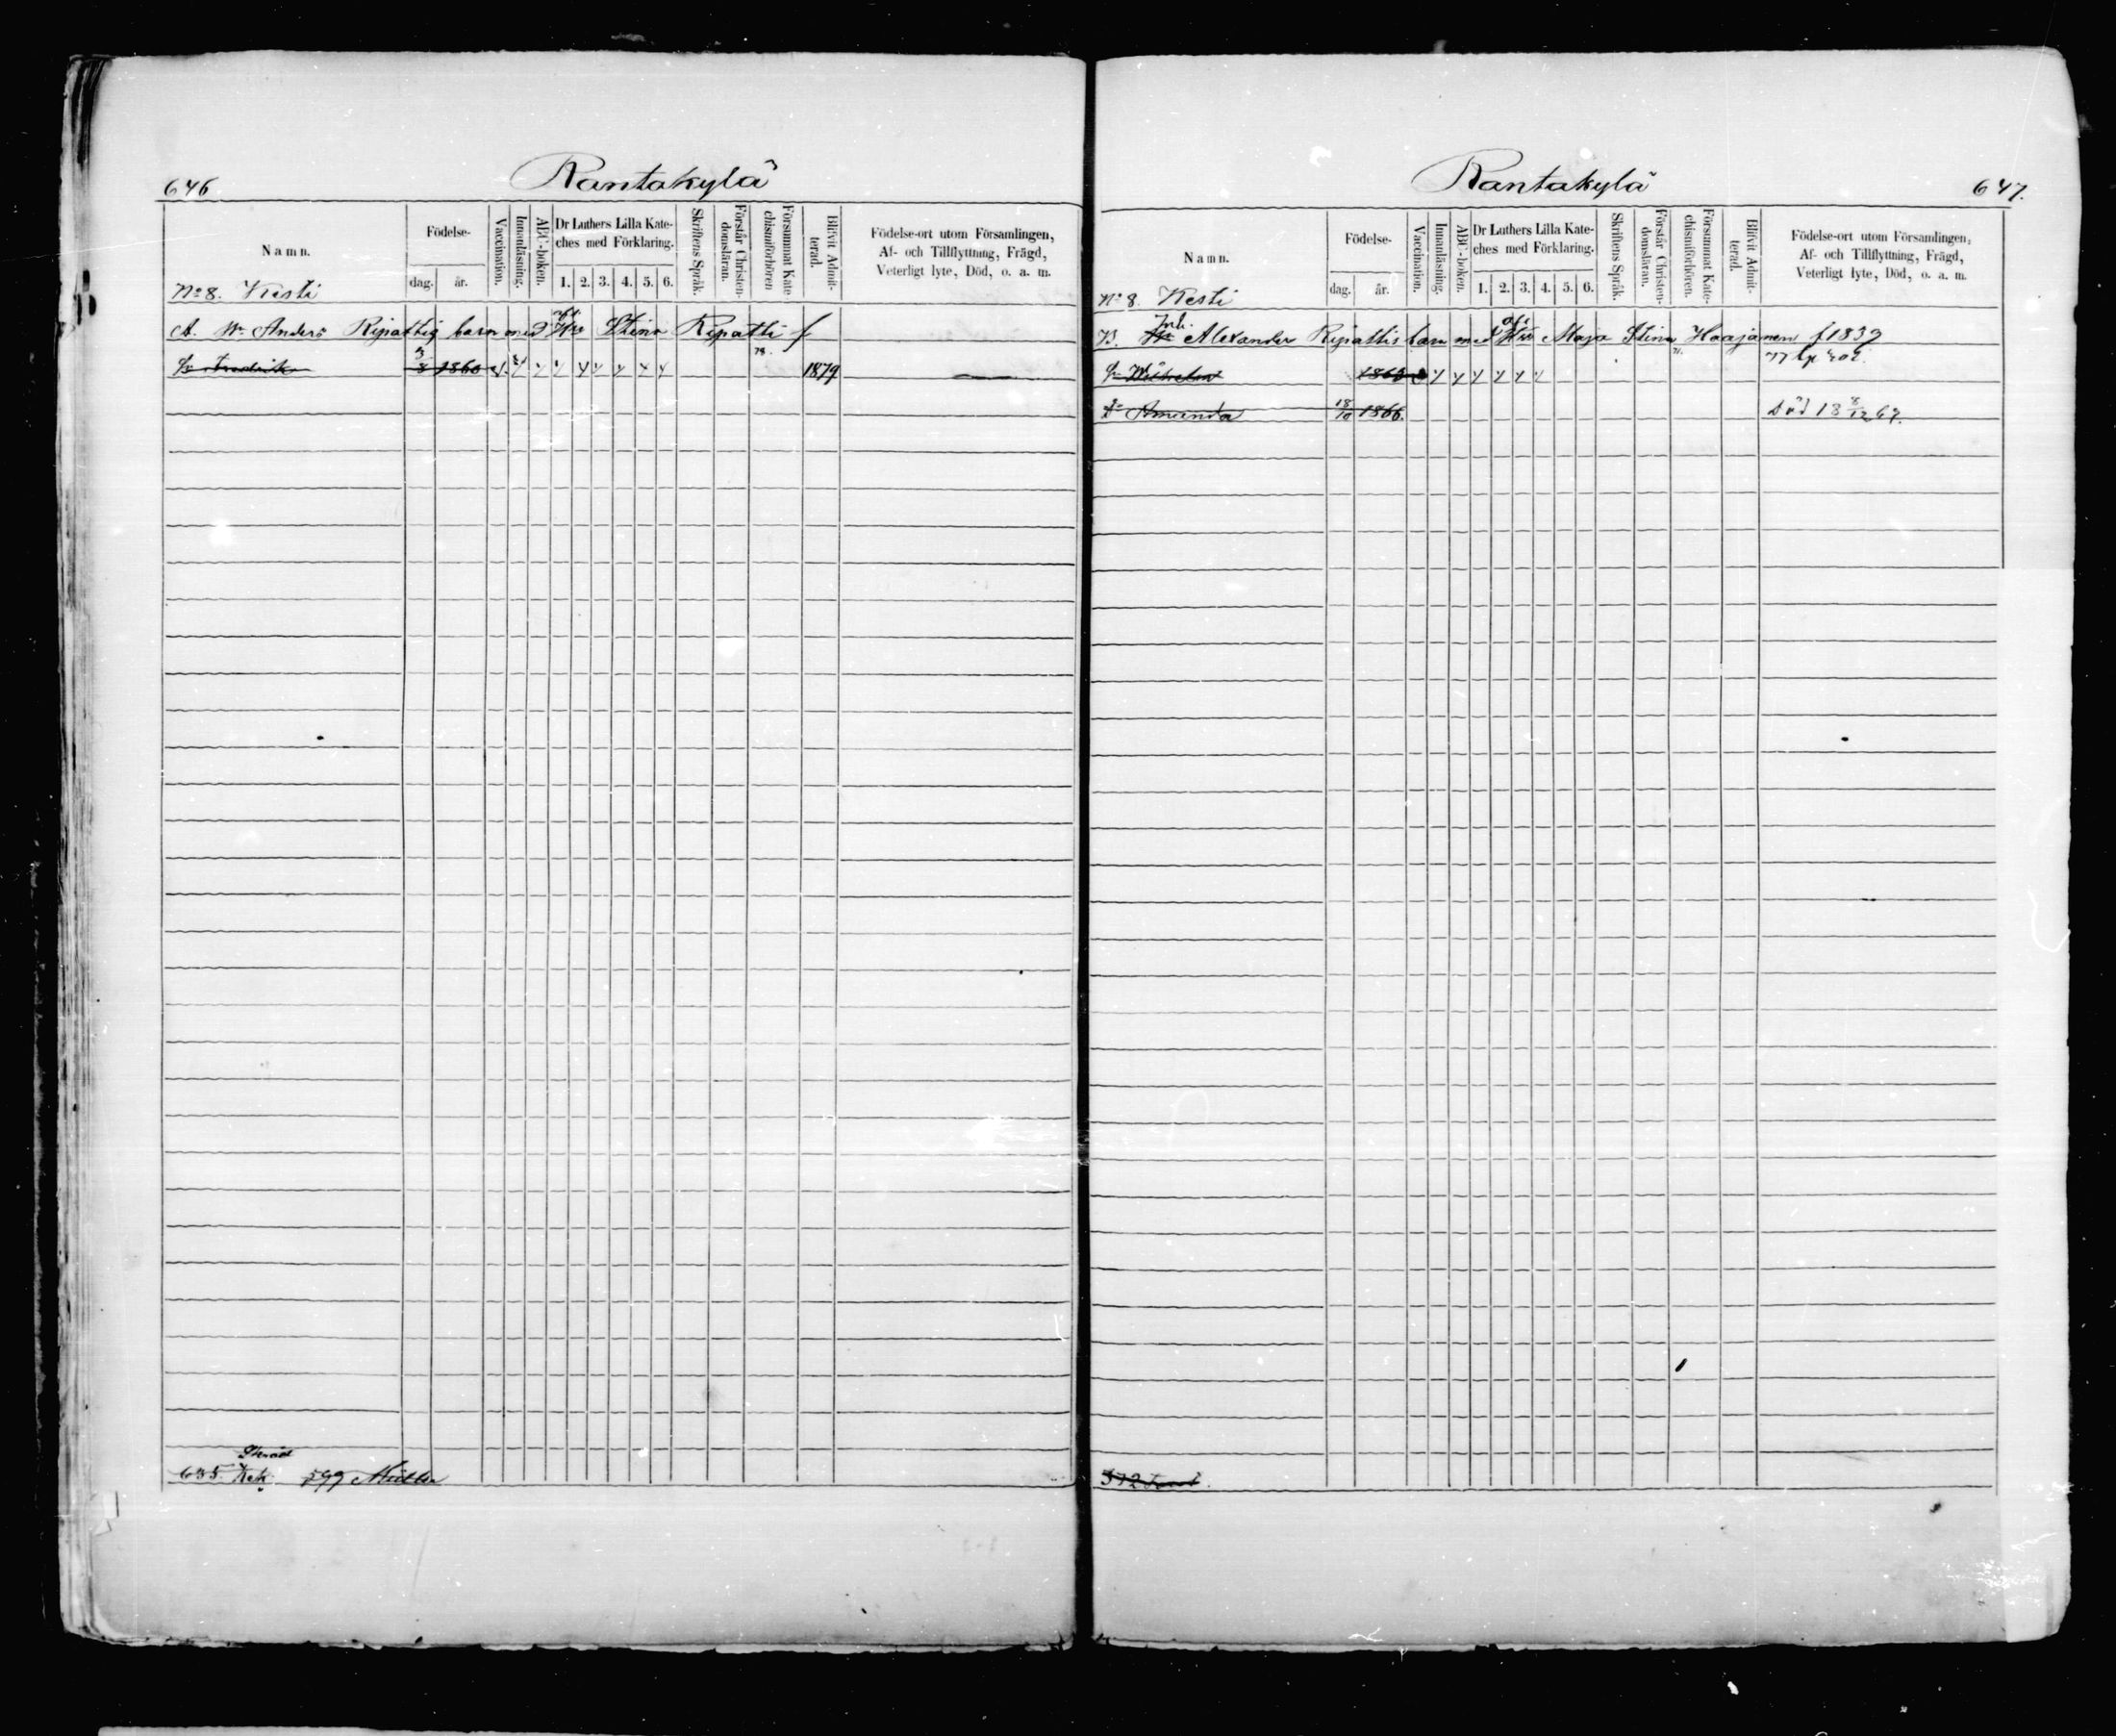 646.
Rantakylä
Namn.
Födelse-
dag.
år.
Vaccination.
Innanläsning.
ABC-boken.
Dr Luthers Lilla Kate-
ches med Förklaring.
1. 2. 3. 4. 5. 6.
Skriftens Språk.
Förstår Christen-
domsläran.
Försummat Kate
chismiförhören
Blifvit Admit-
terad.
Födelse-ort utom Församlingen,
Af- och Tillflyttning, Frägd,
Veterligt lyte, Död, o. a. m.
No 8. Kesti
A. Anders Ripattis barn med Stina Ripatti f
Fredrik 3/8 1860 1879
635 599
Rantakylä
647.
Namn.
Födelse-
dag.
år.
Vaccination.
Innanläsning.
ABC-boken.
Dr Luthers Lilla Kate-
ches med Förklaring.
1. 2. 3. 4. 5. 6.
Skriftens Språk.
Förstår Christen-
domsläran.
Försummat Kate-
chismiförhören.
Blifvit Admit-
terad.
Födelse-ort utom Församlingen,
Af- och Tillflyttning, Frägd,
Veterligt lyte, Död, o. a. m.
No 8. Kesti
B. Inh. Alexander Ripattis barn med Maja Stina Haajanen f 1839
Wilhelm 1863
Amanda 18/10 1866. död 18 8/12 67.
572